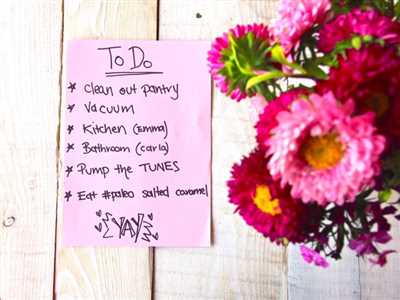 To Do
* Clean out pantry
* Vacuum
* Kitchen (Emma)
* Bathroom (carla)
* Pump the TUNES
* Eat #paleo salted caramel
YAY